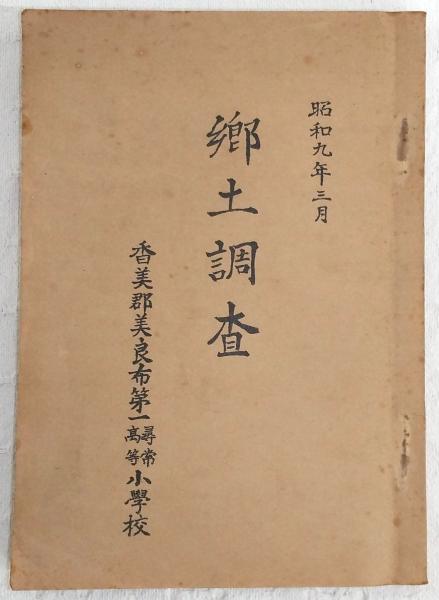 昭和九年三月
鄉土調査
香美郡美良布第一尋常高等小學校